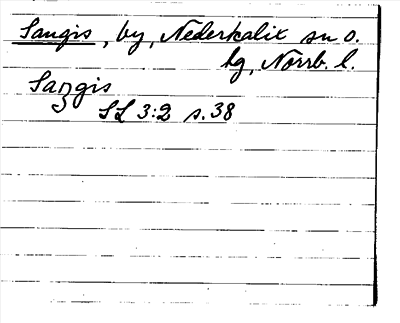 Sangis, by, Nederkalix sn o.
hg, Norrb. l.
Saŋgis
SL 3:2 s. 38